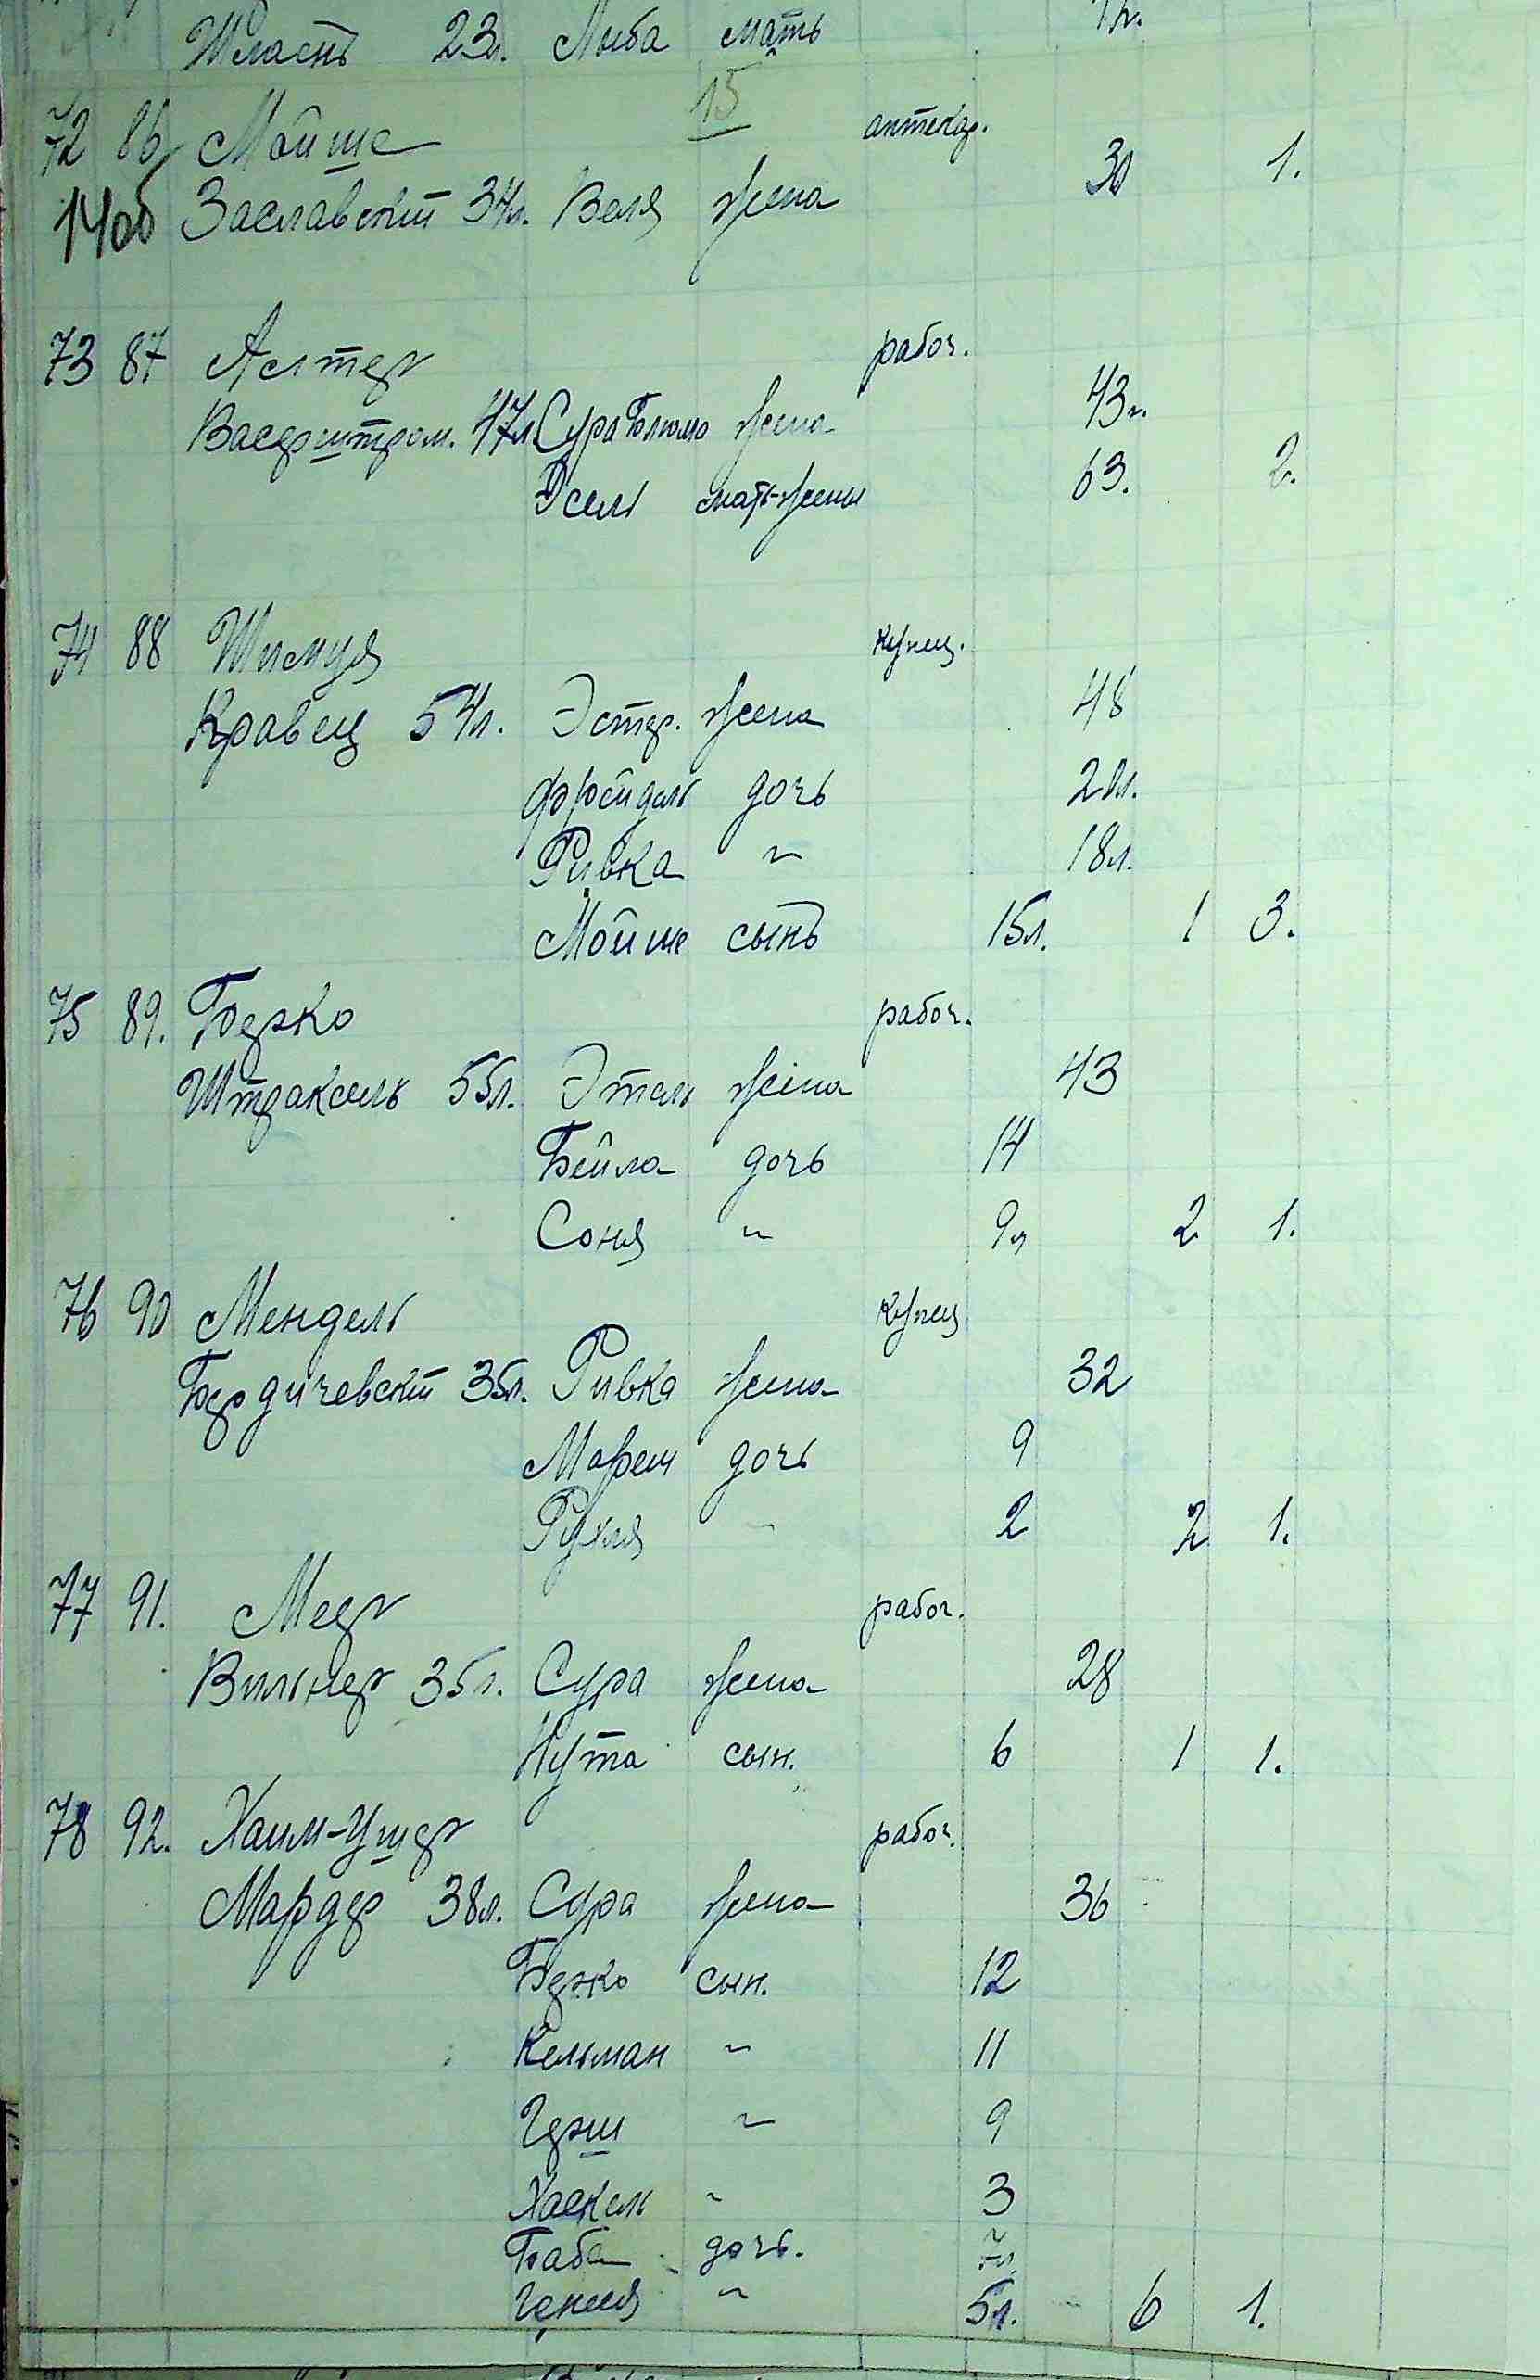 23л. Лыба мать
15
72 86 Мойше аптекар.
140б Заславский 34л. Воля жена 30 1.
73 87 Алтер рабоч.
Васерштром. 47л. Сура Блюма жена 43л.
Эсель мать-жены 63. 2.
74 88 Шмуля купец.
Кравец 54л. Эстер. жена 48
Фрейдель дочь 20л.
Ривка " 18л.
Мойше сынъ 15л. 1 3.
75 89. Берко рабоч.
Штраксель 55л. Этель жена 43
Бейла дочь 14
Соня " 9л 2 1.
76 90 Мендель купец
Бердичевский 35л. Ривка жена 32
дочь 9
Рухля " 2 2 1.
77 91. Меер рабоч.
Вильнер 35л. Сура жена 28
Нута сын. 6 1 1.
78 92. Хаим-Ушер рабоч.
Мардер 38л. Сура жена 36
Берко сын. 12
Кельман " 11
Герш " 9
Хаскель " 3
Баба дочь. 7л
Геня " 5л. 6 1.